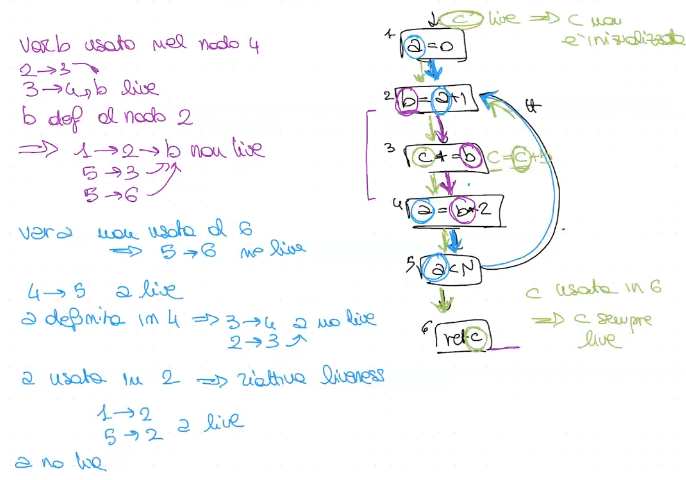 var b usato nel nodo 4
2→3
3→4 b live
b def al nodo 2
⇒ 1→2→b non live
5→3
5→6
var a non usata al 6
⇒ 5→6 no live
4→5 a live
a definita in 4 ⇒ 3→4 a no live
2→3
a usata in 2 ⇒ riattiva liveness
1→2
5→2 a live
a no live
c live ⇒ c non
è inizializzata
1 a=0
2 b=a+1
3 c+=b c=c+b
4 a=b*2
5 a<N
6 ret c
c usata in 6
⇒ c sempre
live